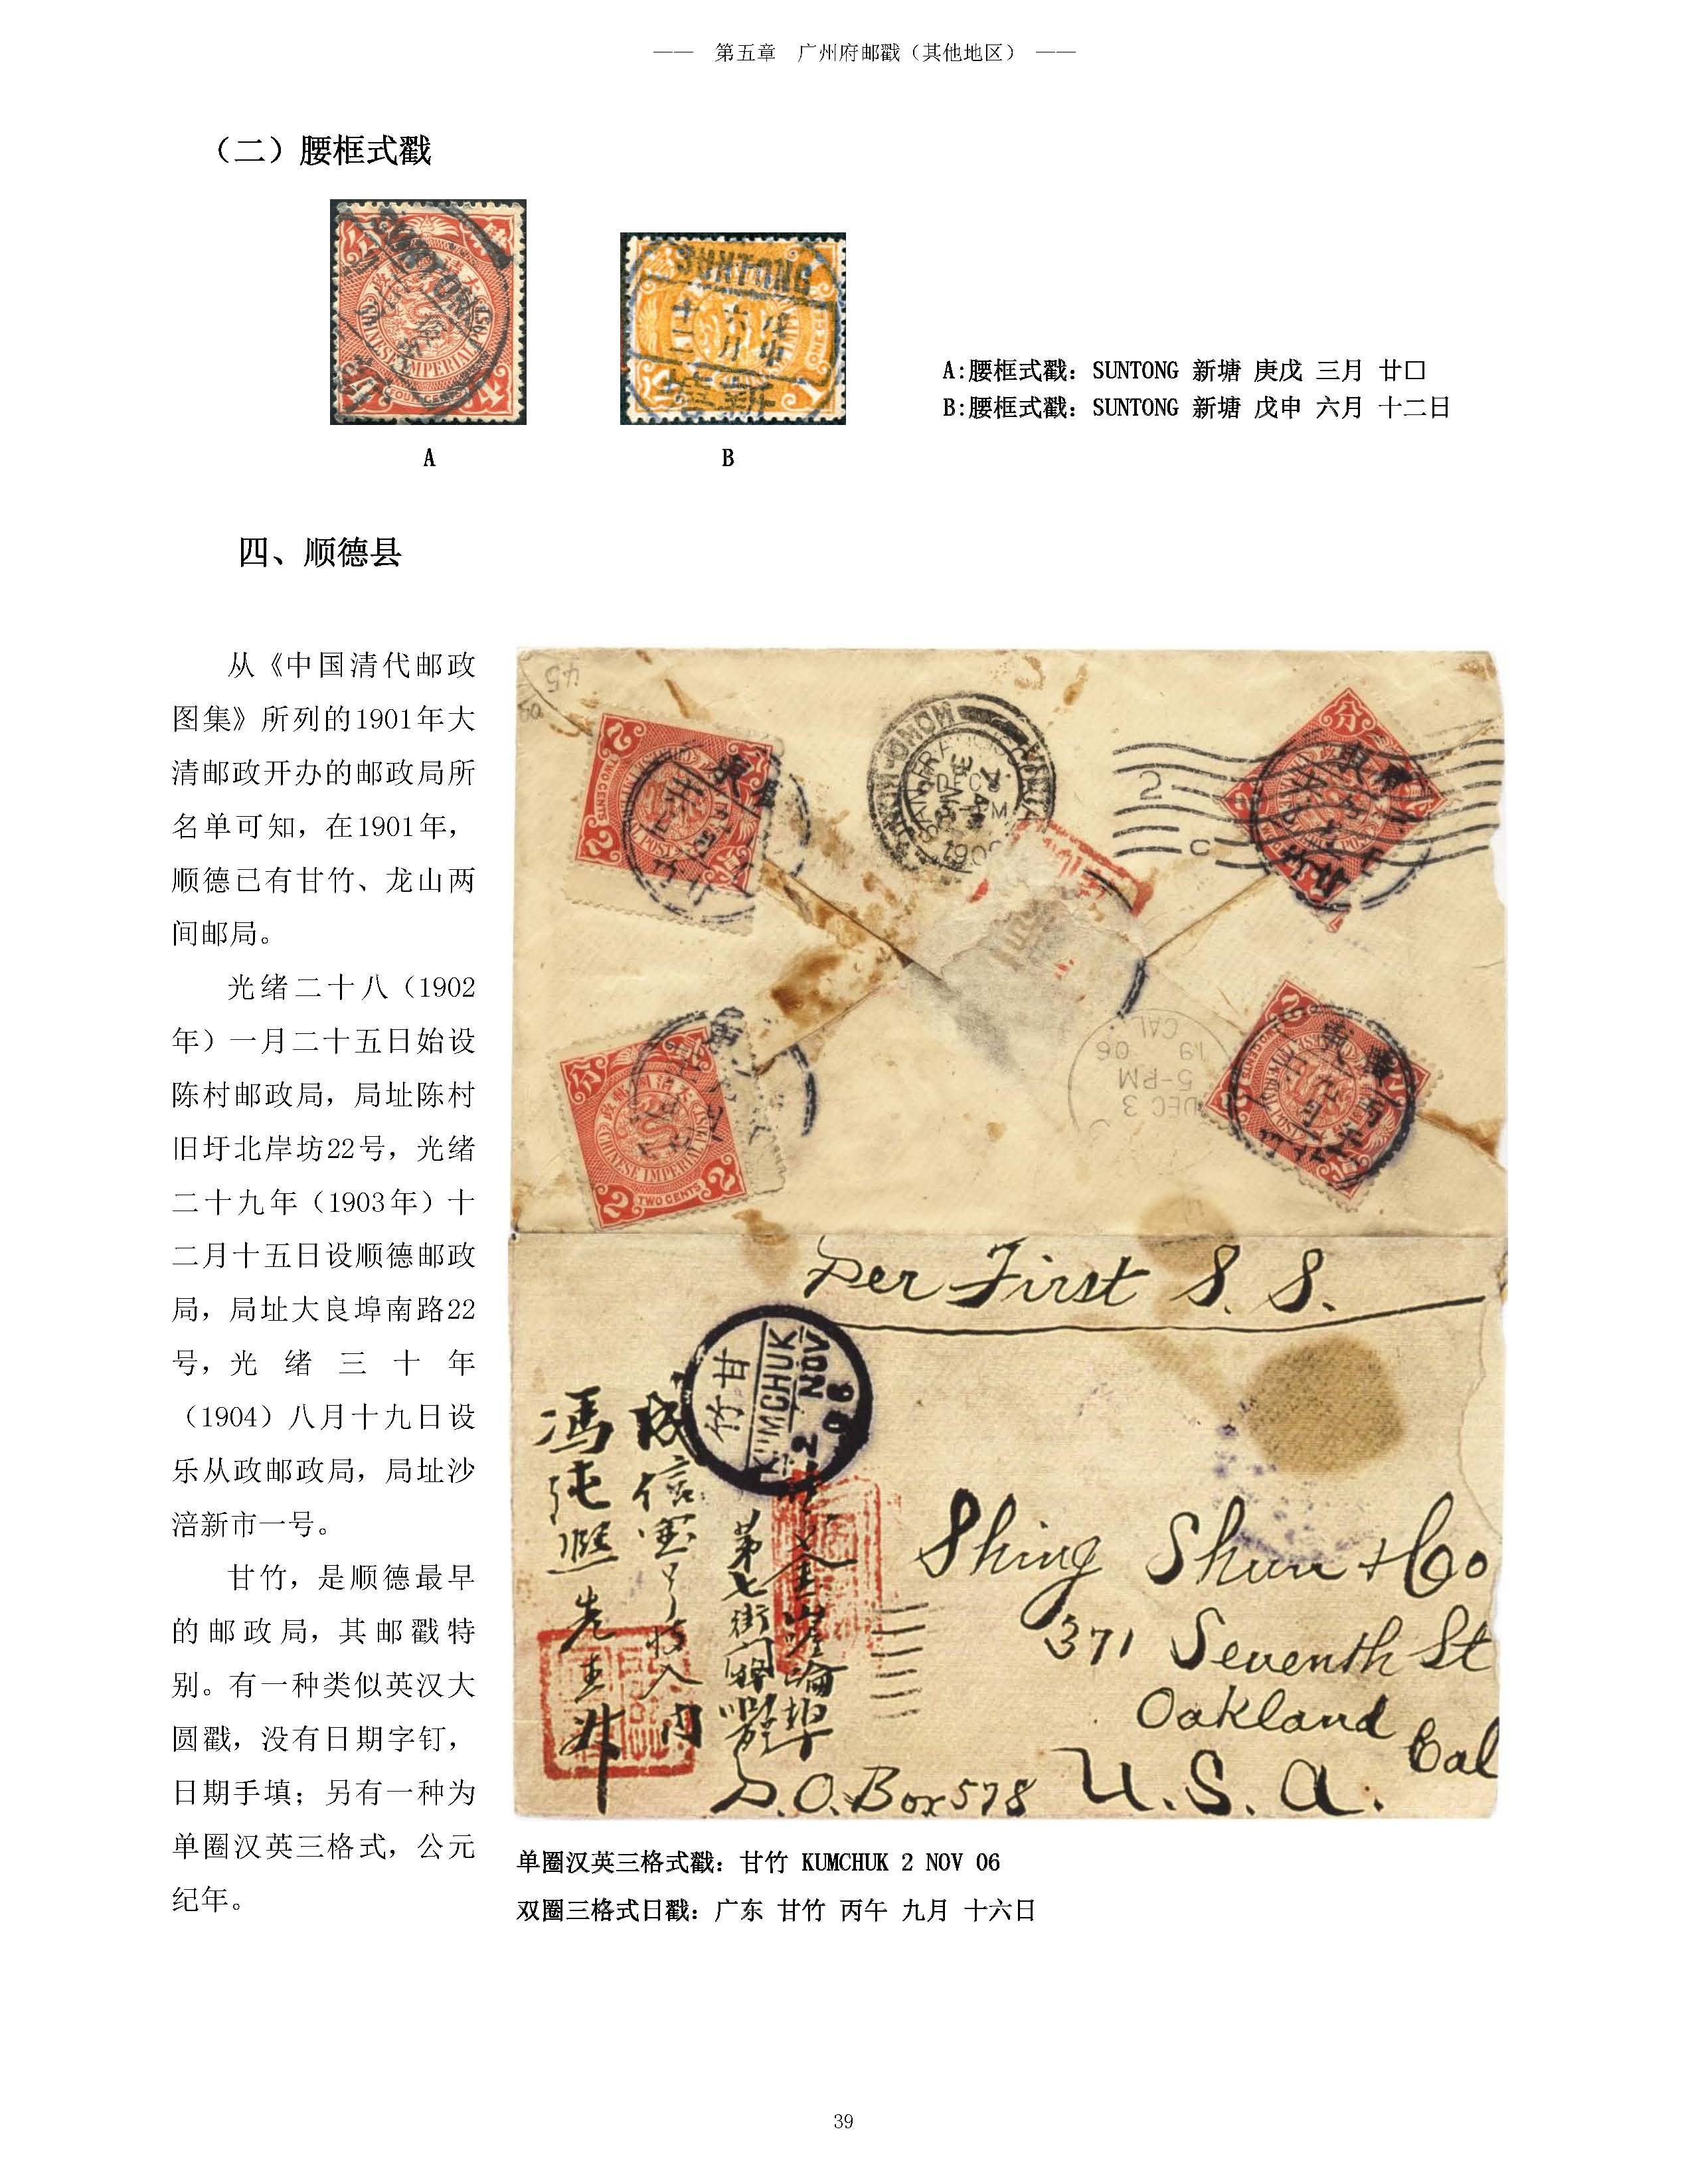 第五章 广州府邮戳（其他地区）
（二）腰框式戳
SUNTONG
A
B
A:腰框式戳：SUNTONG 新塘 庚戊 三月 廿口
B:腰框式戳：SUNTONG 新塘 戊申 六月 十二日
四、顺德县
从《中国清代邮政
图集》所列的1901年大
清邮政开办的邮政局所
名单可知，在1901年，
顺德已有甘竹、龙山两
间邮局。
光绪二十八（1902
年）一月二十五日始设
陈村邮政局，局址陈村
旧圩北岸坊22号，光绪
二十九年（1903年）十
二月十五日设顺德邮政
局，局址大良埠南路22
号，光绪三十年
（1904）八月十九日设
乐从政邮政局，局址沙
涪新市一号。
甘竹，是顺德最早
的邮政局，其邮戳特
别。有一种类似英汉大
圆戳，没有日期字钉，
日期手填；另有一种为
单圈汉英三格式，公元
纪年。
TWO CENTS
CHINESE IMPERIAL POST
DEC 3
5-PM
19 06
CAL
Per First S. S.
甘竹
KUMCHUK
2 NOV
06
Shing Shun & Co
371 Seventh St
Oakland
Cal
P.O. Box 578 U.S.A.
第七街
单圈汉英三格式戳：甘竹 KUMCHUK 2 NOV 06
双圈三格式日戳：广东 甘竹 丙午 九月 十六日
39